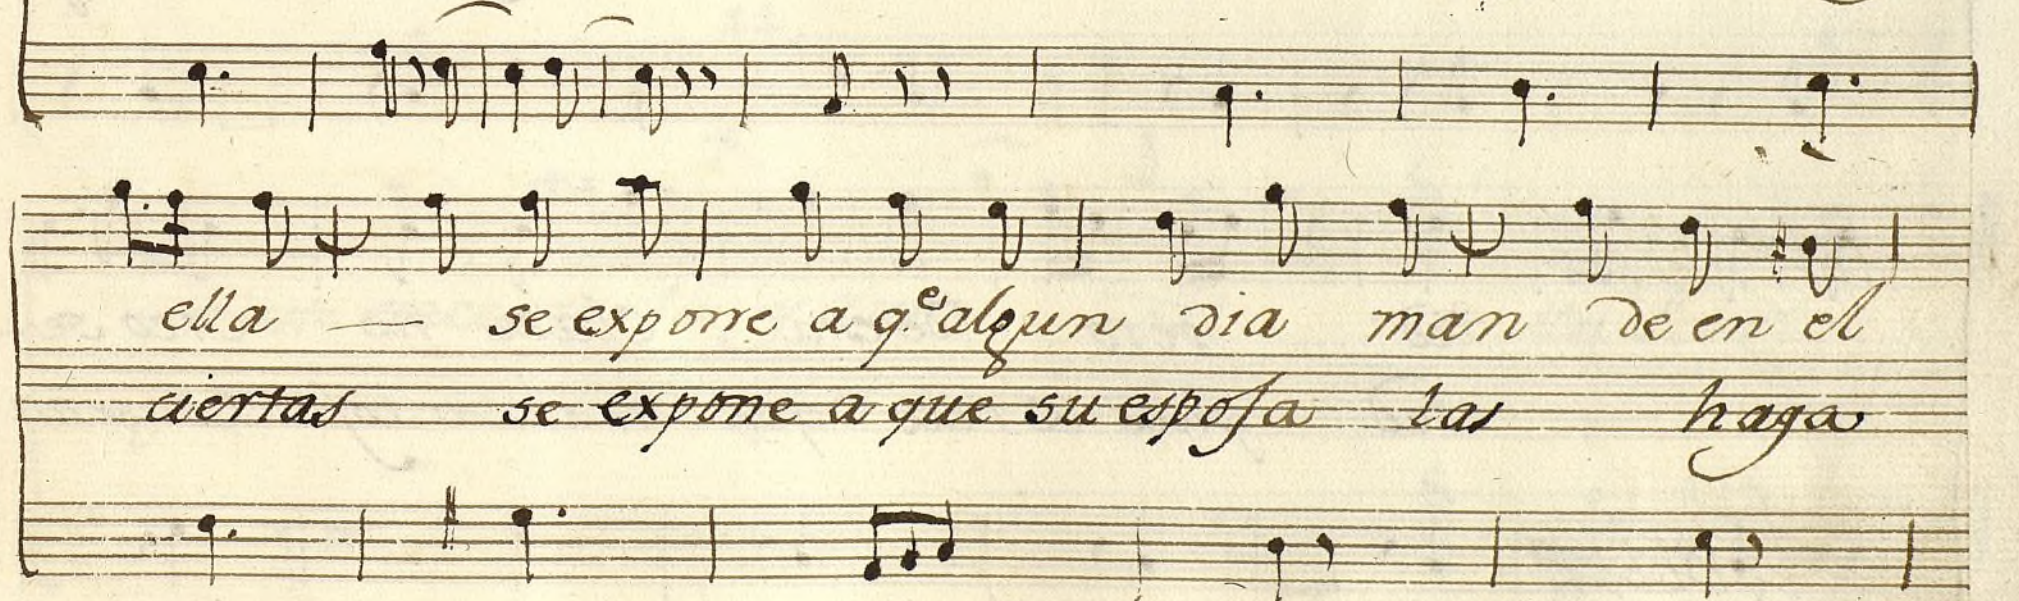 ella — se expone a q.e algun dia man de en el
ciertas se expone a que su esposa las haga